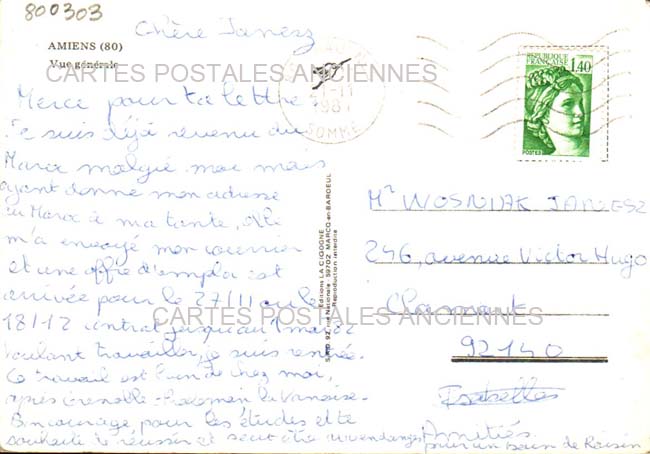 800303
Chère Janesz
AMIENS (80)
Vue générale
CARTES POSTALES ANCIENNES
Merci pour ta lettre.
Je suis déjà revenu du
Maroc malgré moi mais
ayant donné mon adresse
au Maroc à ma tante, elle
m'a envoyé mon courrier
et une offre d'emploi est
arrivée pour le 27/11 ou le
18/12 contrat jusqu'au 1 mai 82
voulant travailler, je suis rentrée.
Ce travail est loin de chez moi,
après Grenoble - la Vanoise -
Bon courage, pour les études et te
souhaite de réussir et peut être au vendanges
pour un bain de Raisin
Amitiés.
Isabelle
Editions LA CIGOGNE
S.P.D. 92, rue Nationale, 59702 MARCQ-en-BAROEUL
Reproduction interdite
11
1981
SOMME
REPUBLIQUE
FRANÇAISE
1,40
POSTES
Mr WOSNIAK JANESZ
246, avenue Victor Hugo
Clamart
92140
CARTES POSTALES ANCIENNES